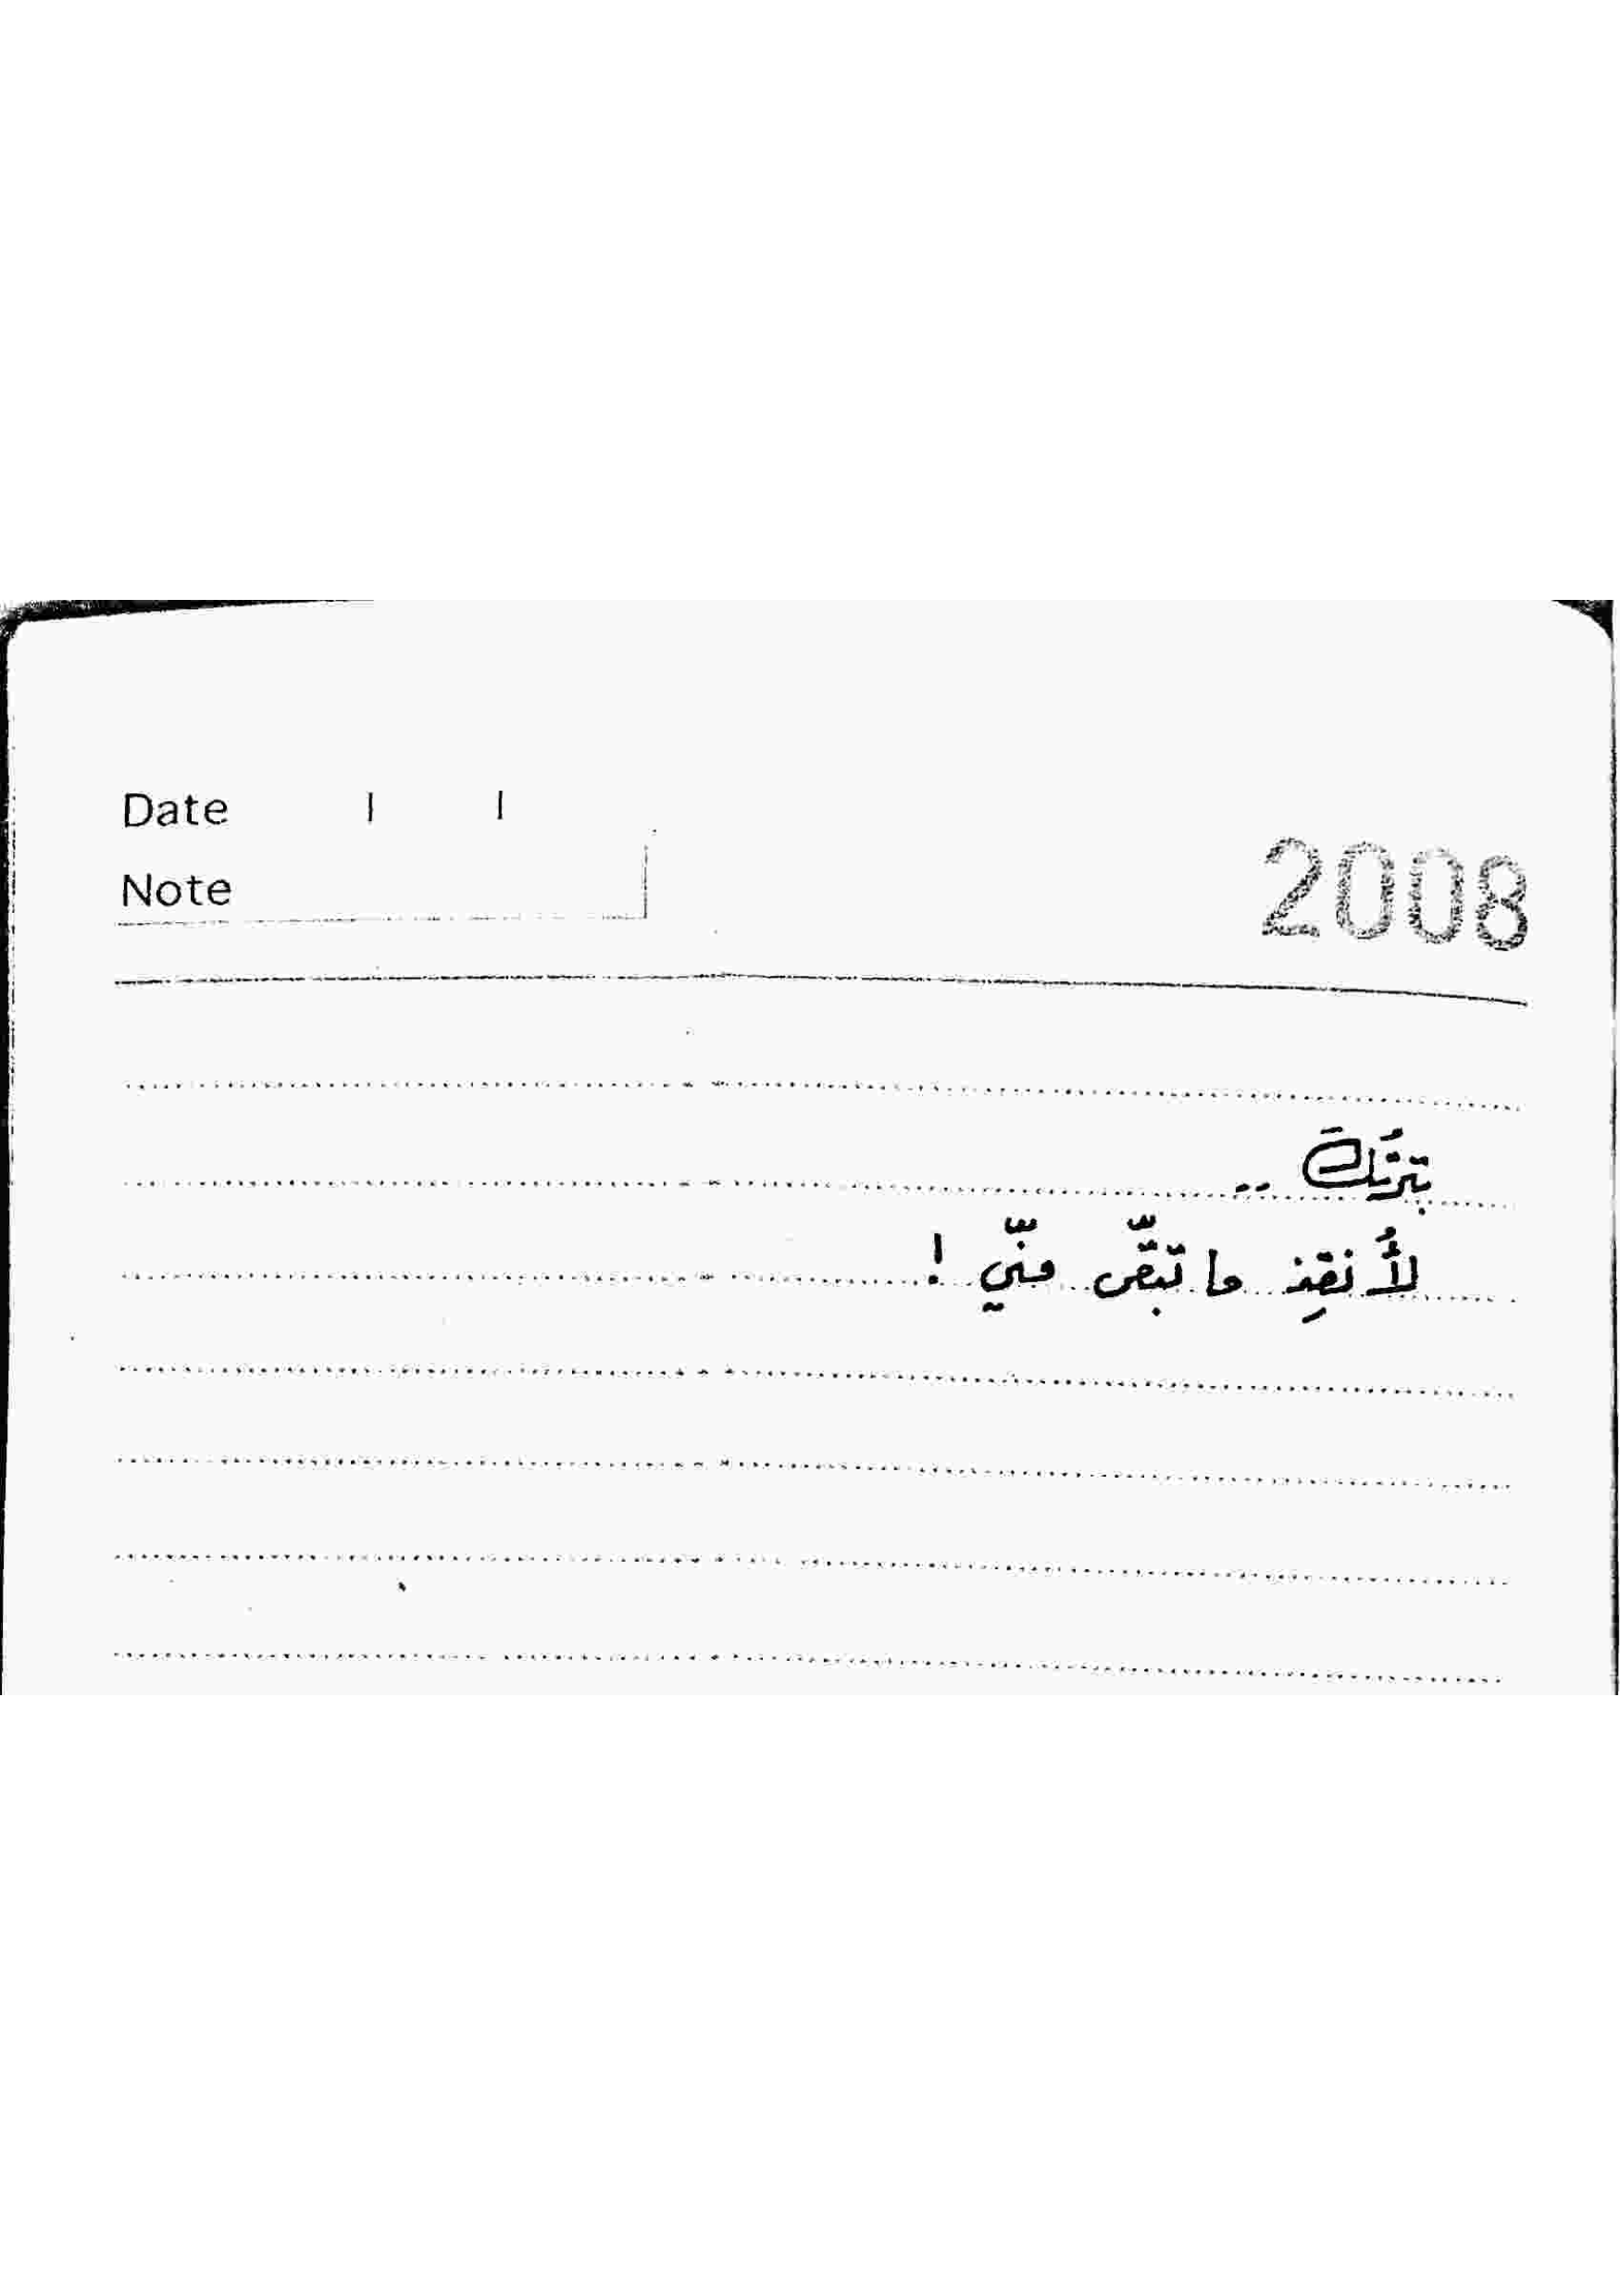 Date / /
Note
2008
بترُكَ ..
لأُنقِذ ما تبقّى منّي !